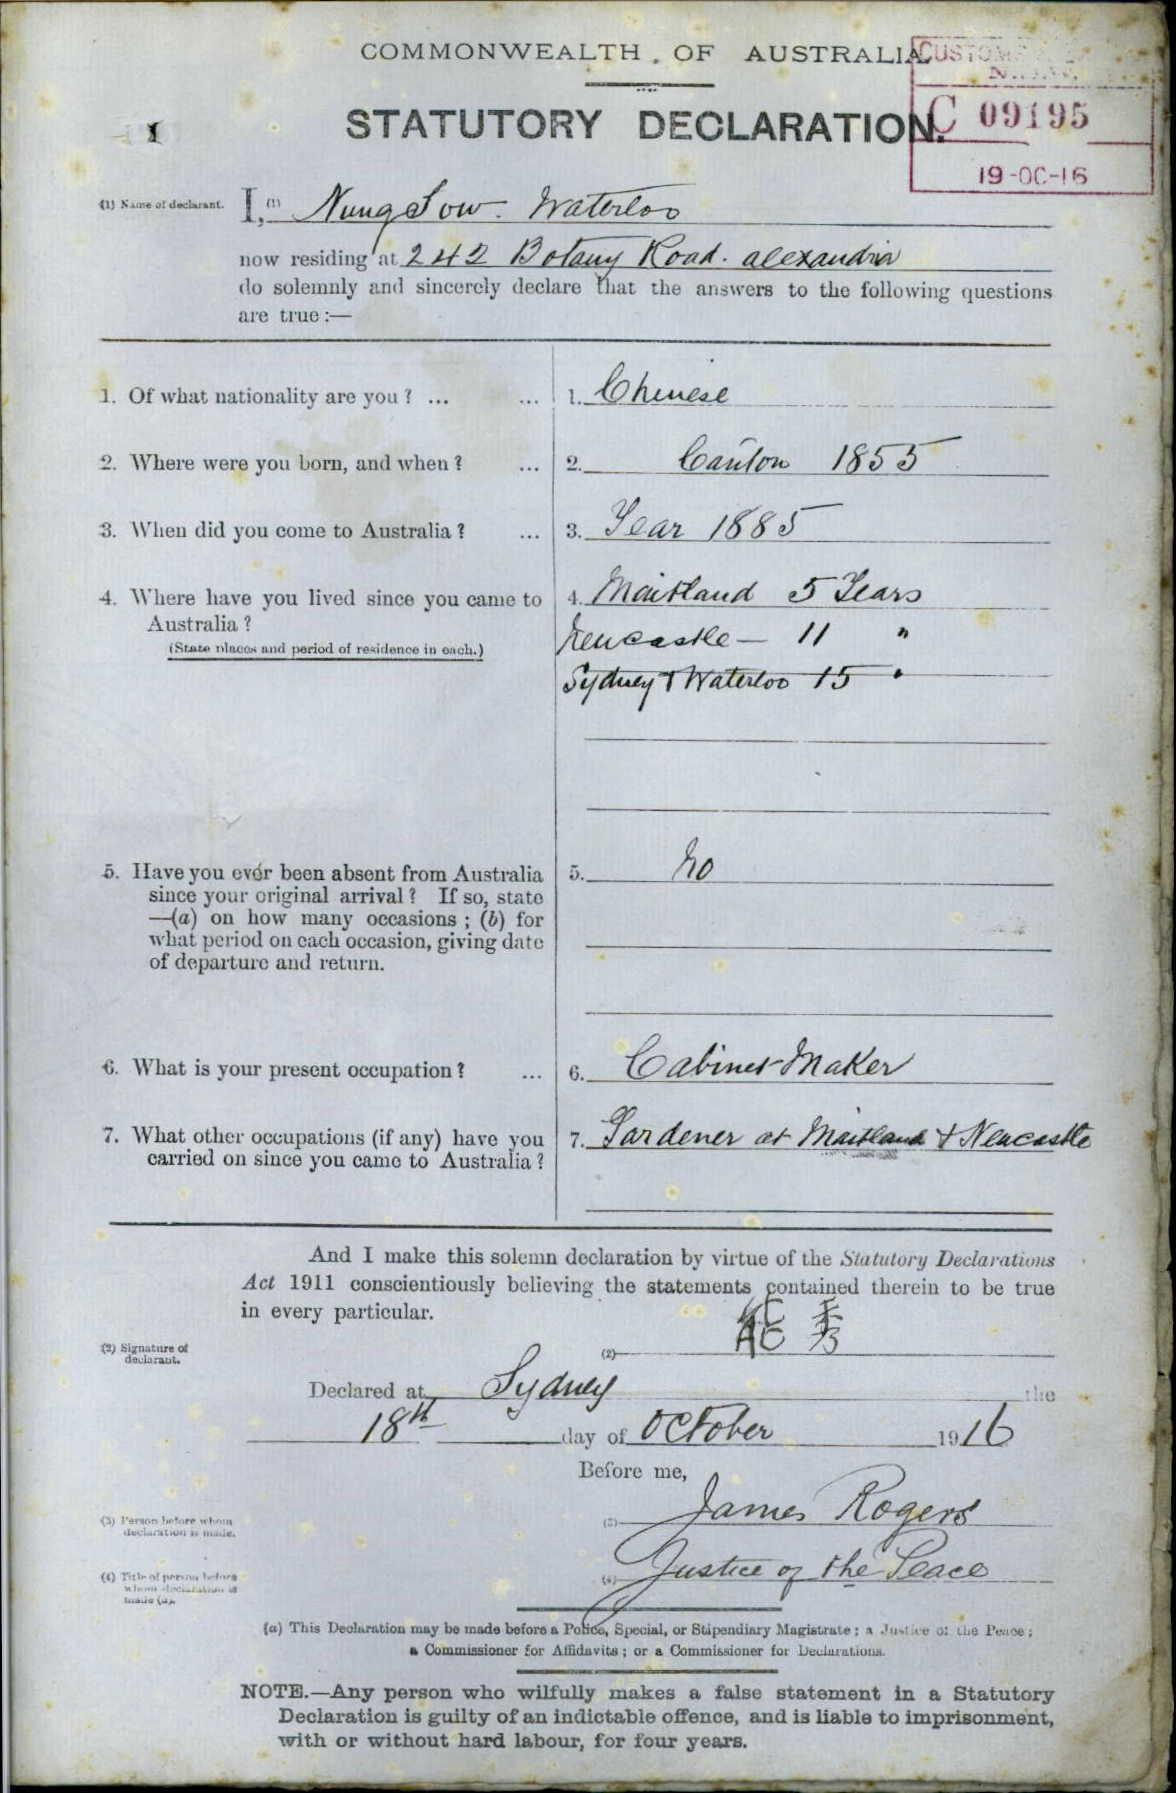 COMMONWEALTH OF AUSTRALIA.
CUSTOMS
N.S.W.
STATUTORY DECLARATION.
C 09195
19-OC-16
1
(1) Name of declarant.
I, (1) Nung Sow. Waterloo
now residing at 242 Botany Road. alexandria
do solemnly and sincerely declare that the answers to the following questions
are true:—
1. Of what nationality are you? ... ... 1. Chinese
2. Where were you born, and when? ... 2. Canton 1855
3. When did you come to Australia? ... 3. Year 1885
4. Where have you lived since you came to 4. Maitland 5 Years
Australia? Newcastle — 11 "
(State places and period of residence in each.)
Sydney & Waterloo 15 "
5. Have you ever been absent from Australia 5. No
since your original arrival? If so, state
—(a) on how many occasions; (b) for
what period on each occasion, giving date
of departure and return.
6. What is your present occupation? ... 6. Cabinet Maker
7. What other occupations (if any) have you 7. Gardener at Maitland & Newcastle
carried on since you came to Australia?
And I make this solemn declaration by virtue of the Statutory Declarations
Act 1911 conscientiously believing the statements contained therein to be true
in every particular.
(2) Signature of
declarant.
(2)
Declared at Sydney the
18th day of October 1916
Before me,
(3) Person before whom
declaration is made.
(3) James Rogers
(4) Title of person before
whom declaration is
made (a).
(4) Justice of the Peace
(a) This Declaration may be made before a Police, Special, or Stipendiary Magistrate; a Justice of the Peace;
a Commissioner for Affidavits; or a Commissioner for Declarations.
NOTE.—Any person who wilfully makes a false statement in a Statutory
Declaration is guilty of an indictable offence, and is liable to imprisonment,
with or without hard labour, for four years.